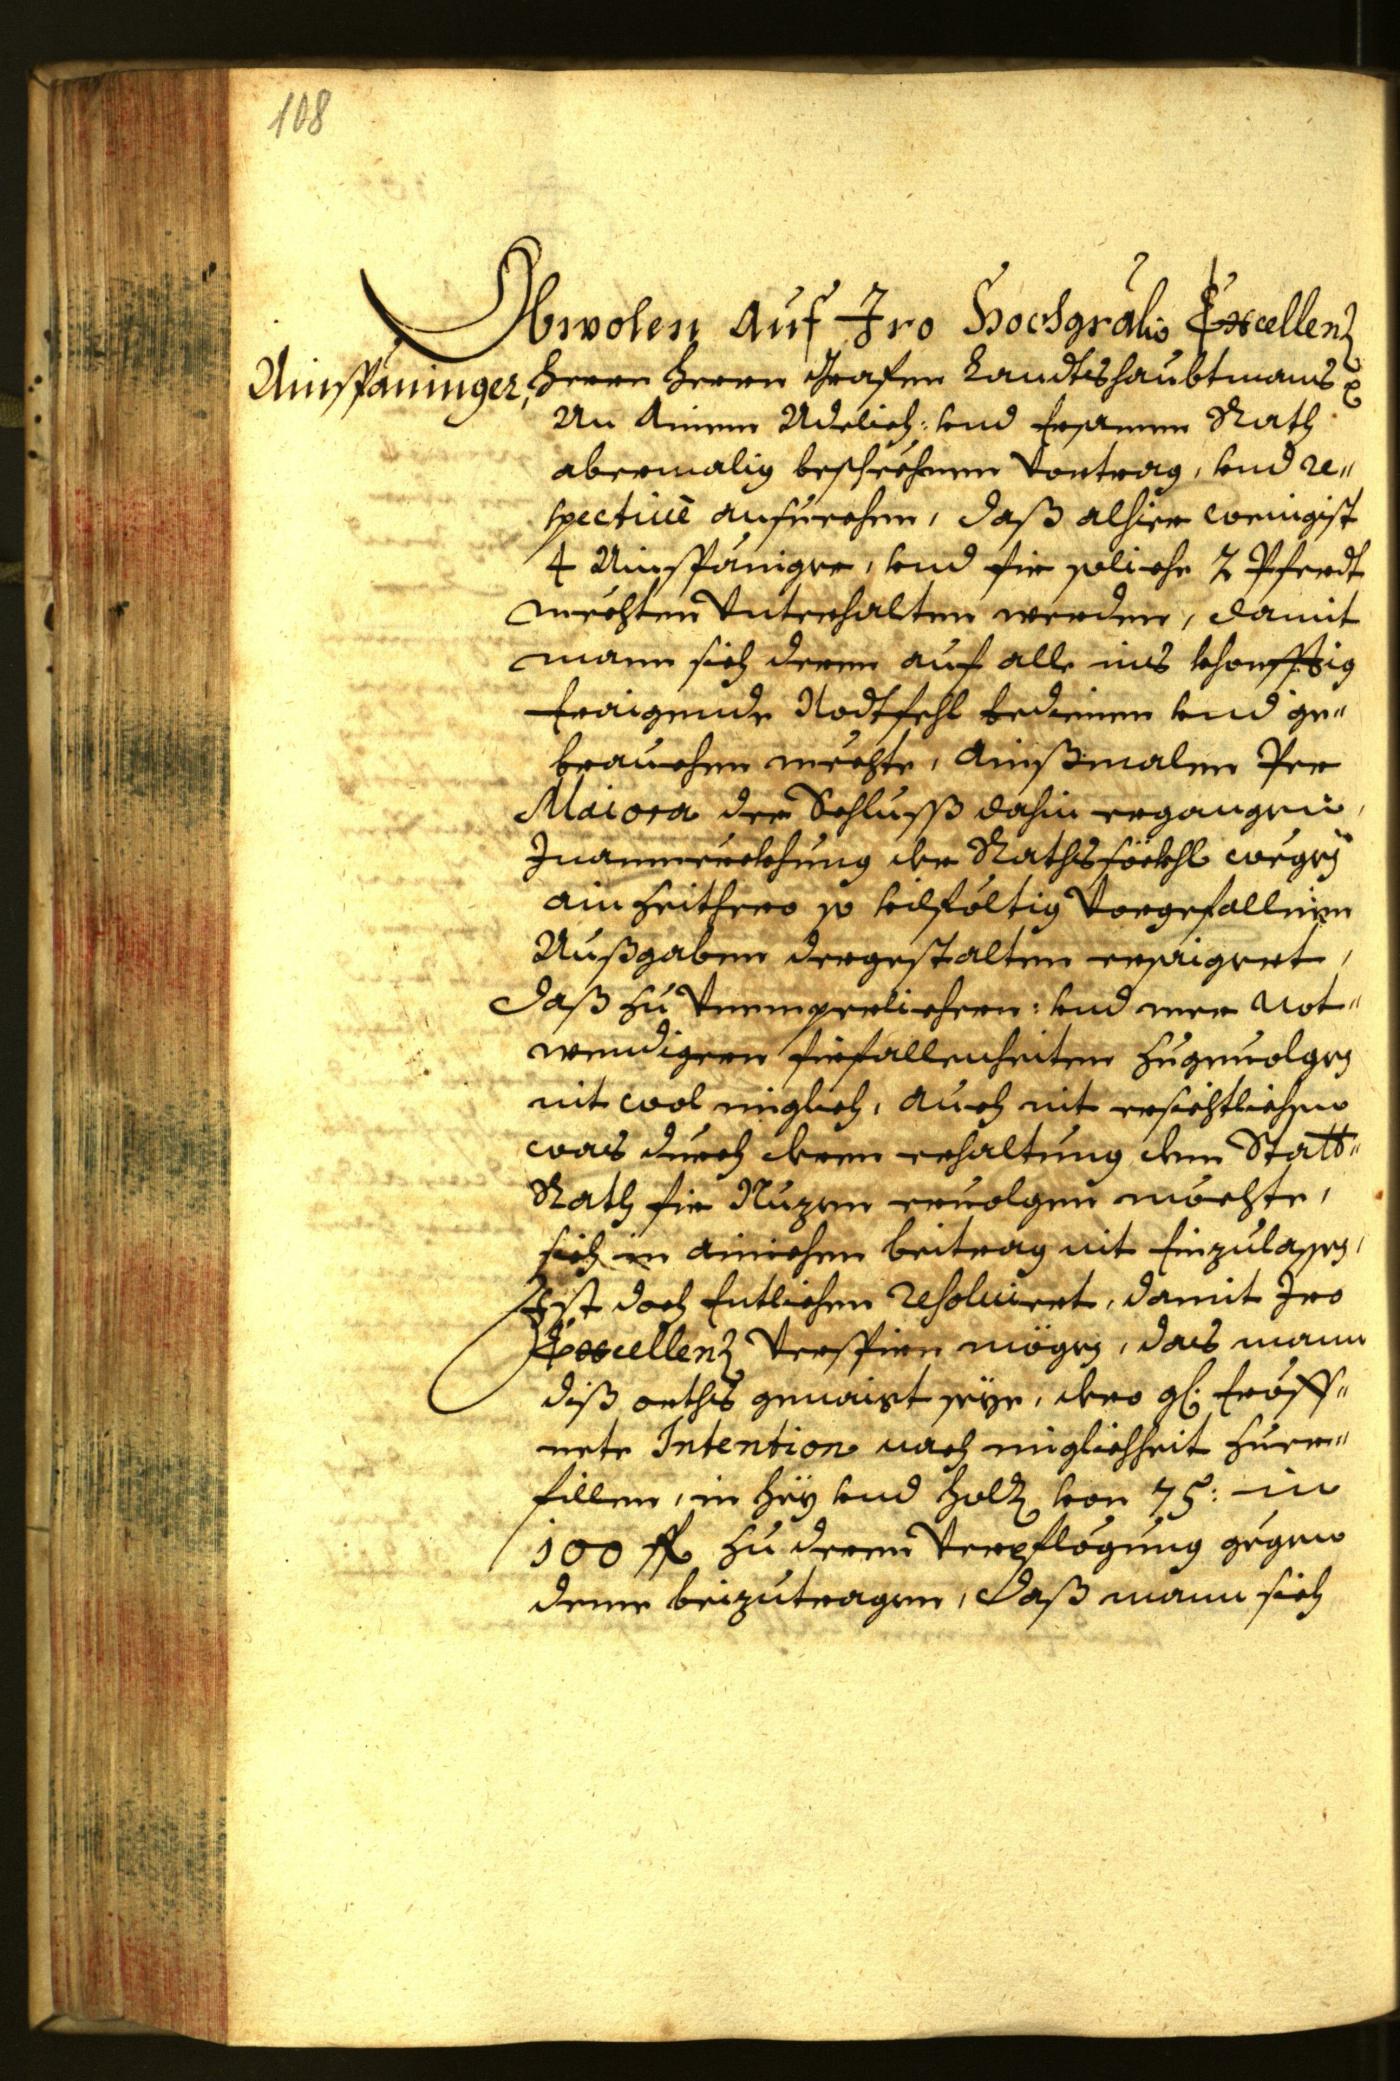 108
Obwolen auf Iro Hochgräli: Excellenz
Ainspäninger,
Herrn Herrn Grafen Landtshaubtmans etc
An Ainem Adelich: vnd Ersamen Rath
abermalig beschechnen Vortrag, vnd re„
spectiuè ansuechen, daß alhier wenigist
4 Ainspäniger, vnd für soliche 2 Pferdt
mechten Vnterhalten werden, damit
mann sich deren auf alle ins khonfftig
Eraigende Nodtfehl bedienen vnd ge„
brauchen mechte, Ainßmalen Per
Maiora der Schlusß dahin ergangen,
Inanmerckhung der Rathsseckhl wegen
ain Zeithero so vilföltig Vorgefallnen
Außgaben dergestalten erseigert,
daß zu Vnempörlichern: vnd mer not„
wendigern firfallenheiten zugeuolgen
nit wol miglich, auch nit ersichtlichen
was durch deren erhaltung dem Statt„
Rath für Nuzen eruolgen möchte,
sich in ainichen beitrag nit Einzulassen,
Ist doch Entlichen resoluiert, damit Iro
Excellenz Verspiren mögen, das mann
diß orths genaigt seye, dero gl: Eröff„
nete Intention nach miglichkeit zuer„
fillen, in hey vnd holz von 75: in
100 fl zu deren Verpflögung gegen
deme beizutragen, daß mann sich